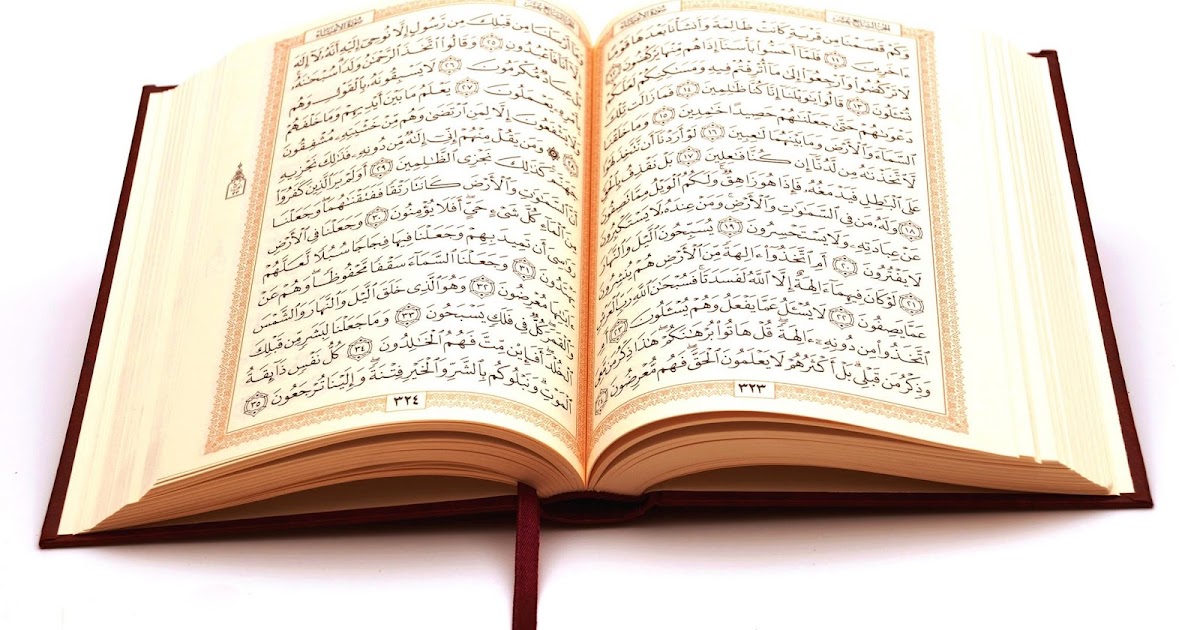 الجزء السابع عشر
سورة الأنبياء
وَكَمْ قَصَمْنَا مِن قَرْيَةٍ كَانَتْ ظَالِمَةً وَأَنشَأْنَا بَعْدَهَا قَوْمًا
ءَاخَرِينَ ١١ فَلَمَّآ أَحَسُّوا۟ بَأْسَنَآ إِذَا هُم مِّنْهَا يَرْكُضُونَ ١٢
لَا تَرْكُضُوا۟ وَٱرْجِعُوٓا۟ إِلَىٰ مَآ أُتْرِفْتُمْ فِيهِ وَمَسَٰكِنِكُمْ لَعَلَّكُمْ
تُسْـَٔلُونَ ١٣ قَالُوا۟ يَٰوَيْلَنَآ إِنَّا كُنَّا ظَٰلِمِينَ ١٤ فَمَا زَالَت تِّلْكَ
دَعْوَىٰهُمْ حَتَّىٰ جَعَلْنَٰهُمْ حَصِيدًا خَٰمِدِينَ ١٥ وَمَا خَلَقْنَا
ٱلسَّمَآءَ وَٱلْأَرْضَ وَمَا بَيْنَهُمَا لَٰعِبِينَ ١٦ لَوْ أَرَدْنَآ أَن نَّتَّخِذَ لَهْوًا
لَّٱتَّخَذْنَٰهُ مِن لَّدُنَّآ إِن كُنَّا فَٰعِلِينَ ١٧ بَلْ نَقْذِفُ بِٱلْحَقِّ
عَلَى ٱلْبَٰطِلِ فَيَدْمَغُهُۥ فَإِذَا هُوَ زَاهِقٌ ۚ وَلَكُمُ ٱلْوَيْلُ مِمَّا تَصِفُونَ
١٨ وَلَهُۥ مَن فِى ٱلسَّمَٰوَٰتِ وَٱلْأَرْضِ ۚ وَمَنْ عِندَهُۥ لَا يَسْتَكْبِرُونَ
عَنْ عِبَادَتِهِۦ وَلَا يَسْتَحْسِرُونَ ١٩ يُسَبِّحُونَ ٱلَّيْلَ وَٱلنَّهَارَ
لَا يَفْتُرُونَ ٢٠ أَمِ ٱتَّخَذُوٓا۟ ءَالِهَةً مِّنَ ٱلْأَرْضِ هُمْ يُنشِرُونَ
٢١ لَوْ كَانَ فِيهِمَآ ءَالِهَةٌ إِلَّا ٱللَّهُ لَفَسَدَتَا ۚ فَسُبْحَٰنَ ٱللَّهِ رَبِّ ٱلْعَرْشِ
عَمَّا يَصِفُونَ ٢٢ لَا يُسْـَٔلُ عَمَّا يَفْعَلُ وَهُمْ يُسْـَٔلُونَ ٢٣ أَمِ
ٱتَّخَذُوا۟ مِن دُونِهِۦٓ ءَالِهَةً ۖ قُلْ هَاتُوا۟ بُرْهَٰنَكُمْ ۖ هَٰذَا ذِكْرُ مَن مَّعِىَ
وَذِكْرُ مَن قَبْلِى ۗ بَلْ أَكْثَرُهُمْ لَا يَعْلَمُونَ ٱلْحَقَّ ۖ فَهُم مُّعْرِضُونَ ٢٤
٣٢٣
الجزء السابع عشر
سورة الأنبياء
وَمَآ أَرْسَلْنَا مِن قَبْلِكَ مِن رَّسُولٍ إِلَّا نُوحِىٓ إِلَيْهِ أَنَّهُۥ لَآ إِلَٰهَ
إِلَّآ أَنَا۠ فَٱعْبُدُونِ ٢٥ وَقَالُوا۟ ٱتَّخَذَ ٱلرَّحْمَٰنُ وَلَدًا ۗ سُبْحَٰنَهُۥ ۚ
بَلْ عِبَادٌ مُّكْرَمُونَ ٢٦ لَا يَسْبِقُونَهُۥ بِٱلْقَوْلِ وَهُم
بِأَمْرِهِۦ يَعْمَلُونَ ٢٧ يَعْلَمُ مَا بَيْنَ أَيْدِيهِمْ وَمَا خَلْفَهُمْ
وَلَا يَشْفَعُونَ إِلَّا لِمَنِ ٱرْتَضَىٰ وَهُم مِّنْ خَشْيَتِهِۦ مُشْفِقُونَ
٢٨ ۞ وَمَن يَقُلْ مِنْهُمْ إِنِّىٓ إِلَٰهٌ مِّن دُونِهِۦ فَذَٰلِكَ نَجْزِيهِ
جَهَنَّمَ ۚ كَذَٰلِكَ نَجْزِى ٱلظَّٰلِمِينَ ٢٩ أَوَلَمْ يَرَ ٱلَّذِينَ كَفَرُوٓا۟
أَنَّ ٱلسَّمَٰوَٰتِ وَٱلْأَرْضَ كَانَتَا رَتْقًا فَفَتَقْنَٰهُمَا ۖ وَجَعَلْنَا
مِنَ ٱلْمَآءِ كُلَّ شَىْءٍ حَىٍّ ۖ أَفَلَا يُؤْمِنُونَ ٣٠ وَجَعَلْنَا فِى ٱلْأَرْضِ
رَوَٰسِىَ أَن تَمِيدَ بِهِمْ وَجَعَلْنَا فِيهَا فِجَاجًا سُبُلًا لَّعَلَّهُمْ
يَهْتَدُونَ ٣١ وَجَعَلْنَا ٱلسَّمَآءَ سَقْفًا مَّحْفُوظًا ۖ وَهُمْ عَنْ
ءَايَٰتِهَا مُعْرِضُونَ ٣٢ وَهُوَ ٱلَّذِى خَلَقَ ٱلَّيْلَ وَٱلنَّهَارَ وَٱلشَّمْسَ
وَٱلْقَمَرَ ۖ كُلٌّ فِى فَلَكٍ يَسْبَحُونَ ٣٣ وَمَا جَعَلْنَا لِبَشَرٍ مِّن قَبْلِكَ
ٱلْخُلْدَ ۖ أَفَإِي۟ن مِّتَّ فَهُمُ ٱلْخَٰلِدُونَ ٣٤ كُلُّ نَفْسٍ ذَآئِقَةُ
ٱلْمَوْتِ ۗ وَنَبْلُوكُم بِٱلشَّرِّ وَٱلْخَيْرِ فِتْنَةً ۖ وَإِلَيْنَا تُرْجَعُونَ ٣٥
٣٢٤